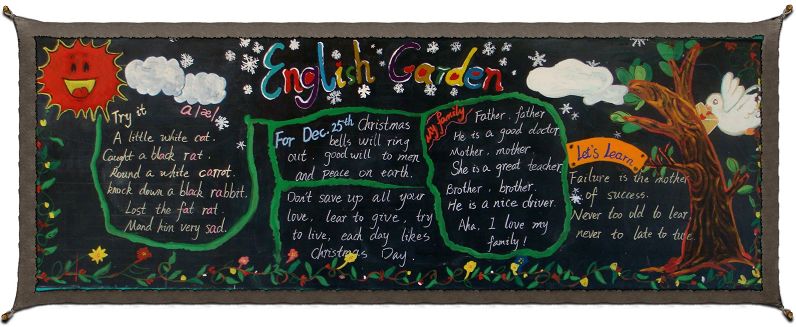 English Garden
Try it
a/æ/
A little white cat.
Caught a black rat.
Round a white carrot.
knock down a black rabbit.
Lost the fat rat.
Mand him very sad.
For Dec. 25th Christmas
bells will ring
out. good will to men
and peace on earth.
Don't save up all your
love, lear to give, try
to live, each day likes
Christmas Day.
My family
Father, father
He is a good doctor
Mother, mother.
She is a great teacher
Brother, brother.
He is a nice driver.
Aha, I love my
family!
Let's Learn
Failure is the mother
of success.
Never too old to lear,
never to late to